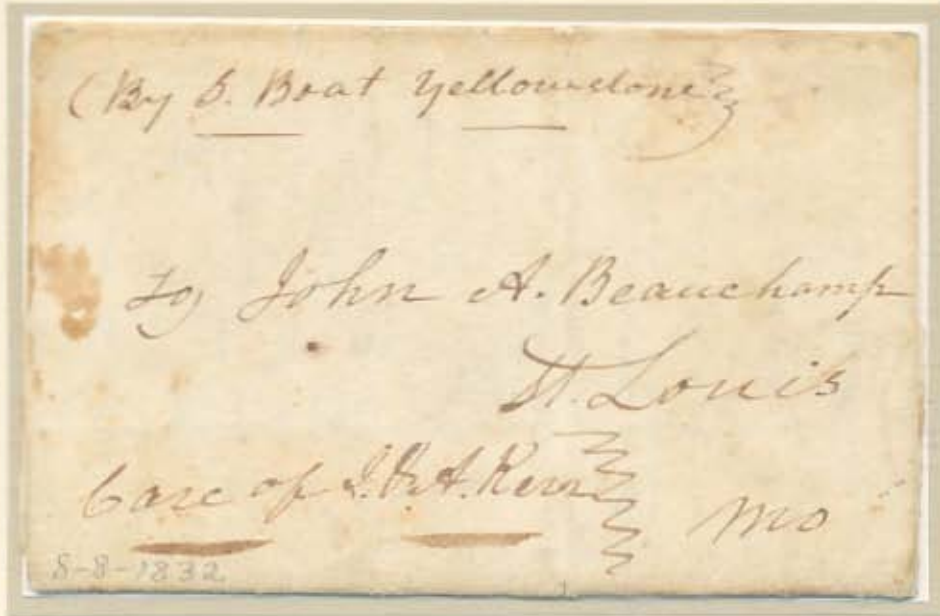 (By S. Boat Yellowstone)
To, John A. Beauchamp
St. Louis
Care of J. & A. Kerr
Mo
8-8-1832